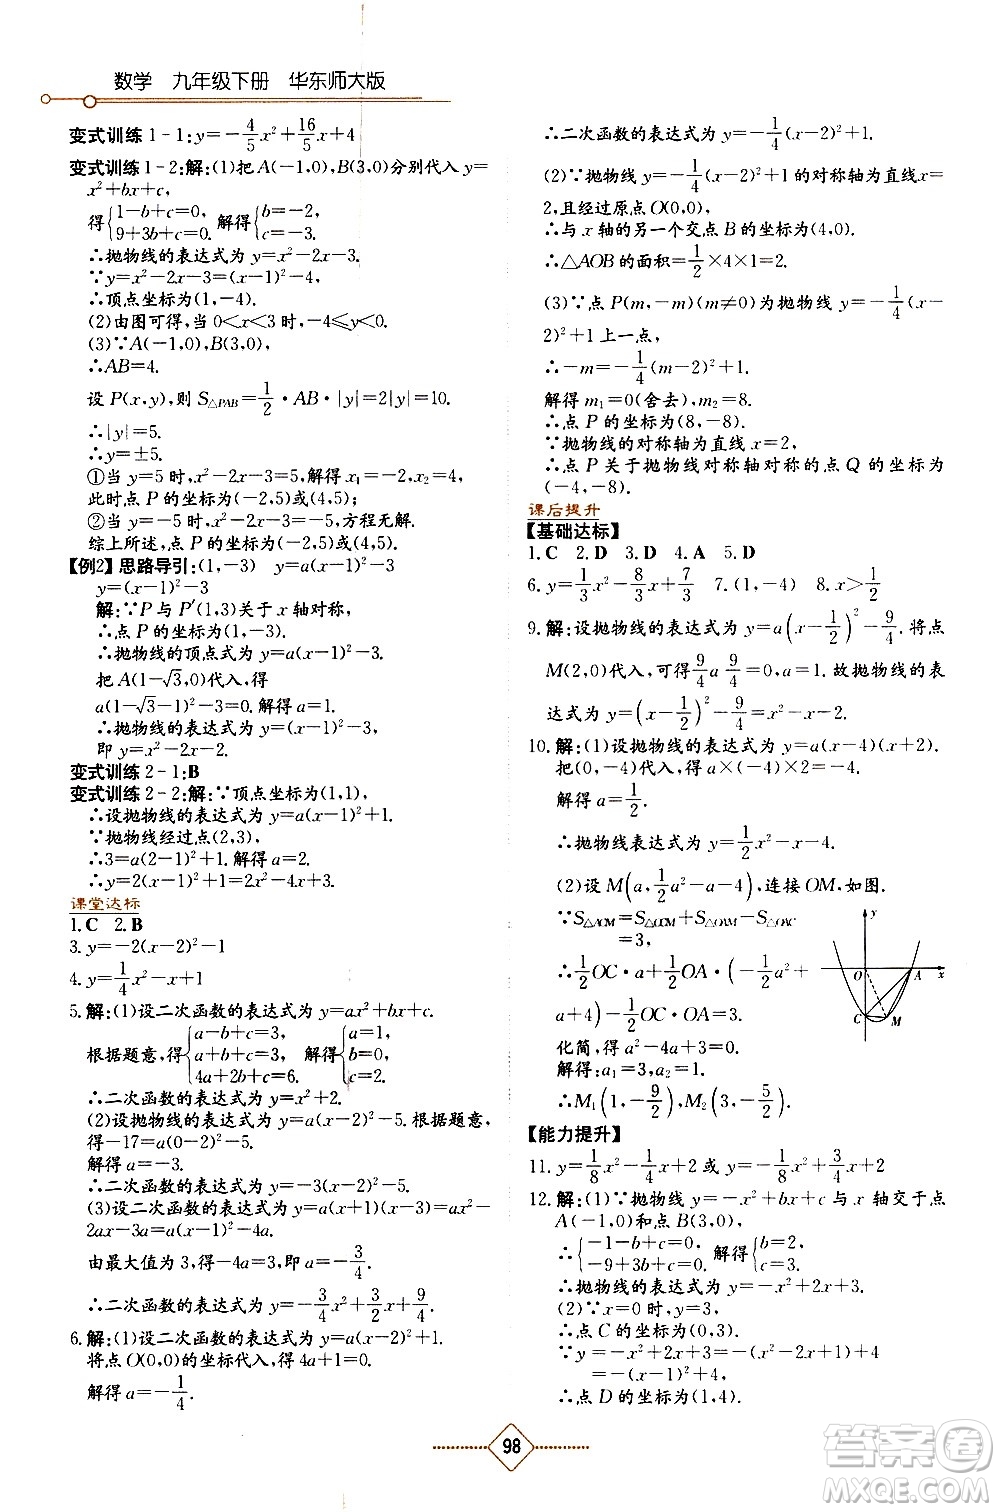 数学 九年级下册 华东师大版
变式训练1-1:y=-4/5x²+16/5x+4
变式训练1-2:解:(1)把A(-1,0),B(3,0)分别代入y=
x²+bx+c,
得{1-b+c=0, 9+3b+c=0. 解得{b=-2, c=-3.
∴抛物线的表达式为y=x²-2x-3.
∵y=x²-2x-3=(x-1)²-4,
∴顶点坐标为(1,-4).
(2)由图可得,当0<x<3时,-4≤y<0.
(3)∵A(-1,0),B(3,0),
∴AB=4.
设P(x,y),则S△PAB=1/2·AB·|y|=2|y|=10.
∴|y|=5.
∴y=±5.
①当y=5时,x²-2x-3=5,解得x₁=-2,x₂=4,
此时点P的坐标为(-2,5)或(4,5);
②当y=-5时,x²-2x-3=-5,方程无解.
综上所述,点P的坐标为(-2,5)或(4,5).
【例2】思路导引:(1,-3) y=a(x-1)²-3
y=(x-1)²-3
解:∵P与P′(1,3)关于x轴对称,
∴点P的坐标为(1,-3).
∴抛物线的顶点式为y=a(x-1)²-3.
把A(1-√3,0)代入,得
a(1-√3-1)²-3=0.解得a=1.
∴抛物线的表达式为y=(x-1)²-3,
即y=x²-2x-2.
变式训练2-1:B
变式训练2-2:解:∵顶点坐标为(1,1),
∴设抛物线的表达式为y=a(x-1)²+1.
∵抛物线经过点(2,3),
∴3=a(2-1)²+1.解得a=2.
∴y=2(x-1)²+1=2x²-4x+3.
课堂达标
1.C 2.B
3.y=-2(x-2)²-1
4.y=1/4x²-x+1
5.解:(1)设二次函数的表达式为y=ax²+bx+c.
根据题意,得{a-b+c=3, a+b+c=3, 4a+2b+c=6. 解得{a=1, b=0, c=2.
∴二次函数的表达式为y=x²+2.
(2)设抛物线的表达式为y=a(x-2)²-5.根据题意,
得-17=a(0-2)²-5.
解得a=-3.
∴二次函数的表达式为y=-3(x-2)²-5.
(3)设二次函数的表达式为y=a(x+1)(x-3)=ax²-
2ax-3a=a(x-1)²-4a.
由最大值为3,得-4a=3,即a=-3/4.
∴二次函数的表达式为y=-3/4x²+3/2x+9/4.
6.解:(1)设二次函数的表达式为y=a(x-2)²+1.
将点O(0,0)的坐标代入,得4a+1=0.
解得a=-1/4.
∴二次函数的表达式为y=-1/4(x-2)²+1.
(2)∵抛物线y=-1/4(x-2)²+1的对称轴为直线x=
2,且经过原点O(0,0),
∴与x轴的另一个交点B的坐标为(4,0).
∴△AOB的面积=1/2×4×1=2.
(3)∵点P(m,-m)(m≠0)为抛物线y=-1/4(x-
2)²+1上一点,
∴-m=-1/4(m-2)²+1.
解得m₁=0(舍去),m₂=8.
∴点P的坐标为(8,-8).
∵抛物线的对称轴为直线x=2,
∴点P关于抛物线对称轴对称的点Q的坐标为
(-4,-8).
课后提升
【基础达标】
1.C 2.D 3.D 4.A 5.D
6.y=1/3x²-8/3x+7/3 7.(1,-4) 8.x>1/2
9.解:设抛物线的表达式为y=a(x-1/2)²-9/4.将点
M(2,0)代入,可得9/4a 9/4=0,a=1.故抛物线的表
达式为y=(x-1/2)²-9/4=x²-x-2.
10.解:(1)设抛物线的表达式为y=a(x-4)(x+2).
把(0,-4)代入,得a×(-4)×2=-4.
解得a=1/2.
∴抛物线的表达式为y=1/2x²-x-4.
(2)设M(a,1/2a²-a-4),连接OM,如图.
∵S△ACM=S△OCM+S△OAM-S△OAC
=3,
∴1/2OC·a+1/2OA·(-1/2a²+
a+4)-1/2OC·OA=3.
化简,得a²-4a+3=0.
解得:a₁=3,a₂=1.
∴M₁(1,-9/2),M₂(3,-5/2).
y
O A x
C M
【能力提升】
11.y=1/8x²-1/4x+2或y=-1/8x²+3/4x+2
12.解:(1)∵抛物线y=-x²+bx+c与x轴交于点
A(-1,0)和点B(3,0),
∴{-1-b+c=0, -9+3b+c=0. 解得{b=2, c=3.
∴抛物线的表达式为y=-x²+2x+3.
(2)∵x=0时,y=3,
∴点C的坐标为(0,3).
∵y=-x²+2x+3=-(x-1)²+4
∴点D的坐标为(1,4).
98
答案圈
MXQE.COM